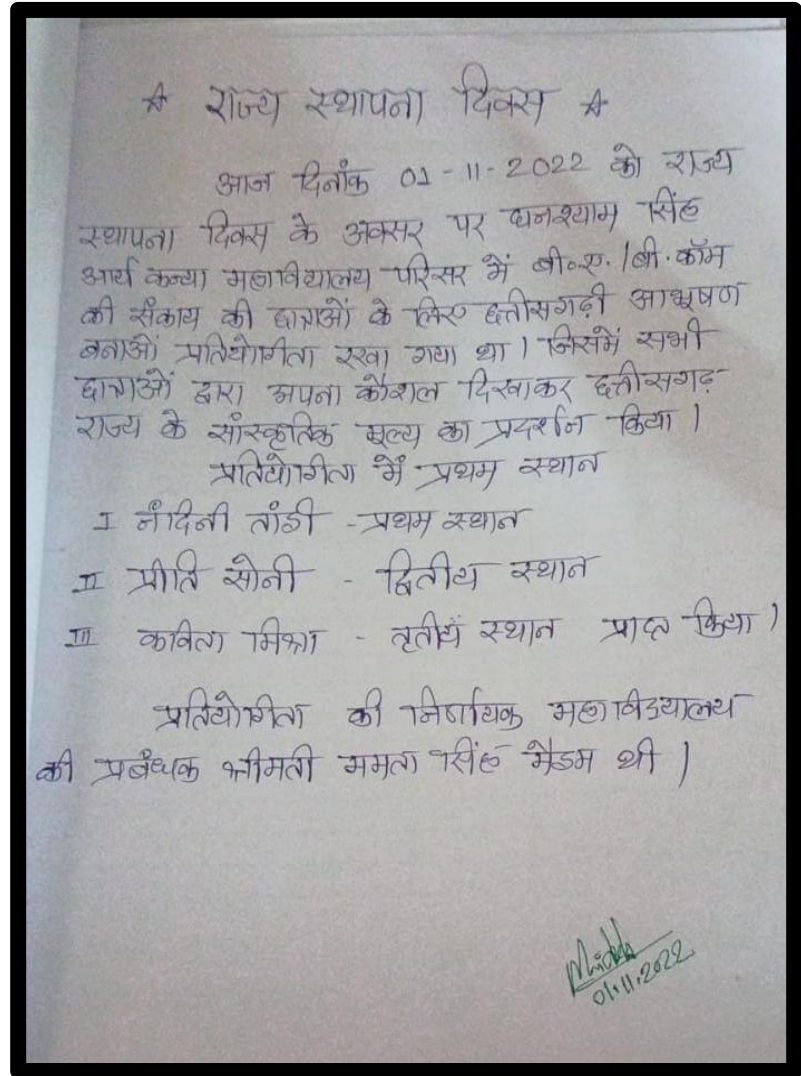 ☆ राज्य स्थापना दिवस ☆
आज दिनाँक 01-11-2022 को राज्य
स्थापना दिवस के अवसर पर घनश्याम सिंह
आर्य कन्या महाविद्यालय परिसर में बी.ए./बी.कॉम
की संकाय की छात्राओं के लिए छत्तीसगढ़ी आभूषण
बनाओं प्रतियोगीता रखा गया था। जिसमें सभी
छात्राओं द्वारा अपना कौशल दिखाकर छत्तीसगढ़
राज्य के सांस्कृतिक मूल्य का प्रदर्शन किया।
प्रतियोगीता में प्रथम स्थान
I नंदिनी तांडी - प्रथम स्थान
II प्रीति सोनी - द्वितीय स्थान
III कविता मिश्रा - तृतीय स्थान प्राप्त किया।
प्रतियोगीता की निर्णायक महाविद्यालय
की प्रबंधक श्रीमती ममता सिंह मैडम थी।
01.11.2022